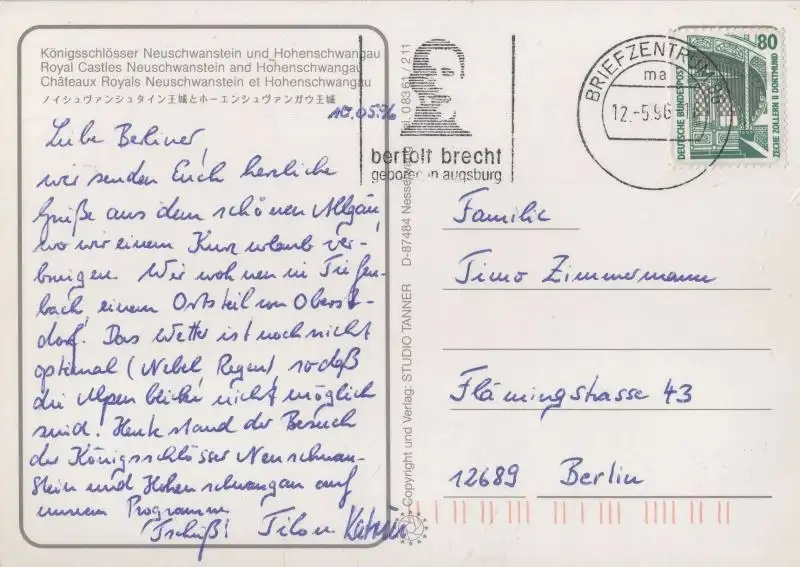 Königsschlösser Neuschwanstein und Hohenschwangau
Royal Castles Neuschwanstein and Hohenschwangau
Châteaux Royals Neuschwanstein et Hohenschwangau
ノイシュヴァンシュタイン王城とホーエンシュヴァンガウ王城
10.05.96
Liebe Berliner,
wir senden Euch herzliche
Grüße aus dem schönen Allgäu,
wo wir einem Kurzurlaub ver-
bringen. Wir wohnen in Tiefen-
bach, einem Ortsteil von Oberst-
dorf. Das Wetter ist noch nicht
optimal (Nebel, Regen), so daß
die Alpenblicke nicht möglich
sind. Heute stand der Besuch
der Königsschlösser Neuschwan-
stein und Hohenschwangau auf
unserem Programm.
Tschüß! Tilo u. Katrin
Copyright und Verlag: STUDIO TANNER D-87484 Nesselwang 08361/211
bertolt brecht
geboren in augsburg
BRIEFZENTRUM 86
ma
12.-5.96-18
80
DEUTSCHE BUNDESPOST
ZECHE ZOLLERN II DORTMUND
Familie
Timo Zimmermann
Flämingstrasse 43
12689 Berlin